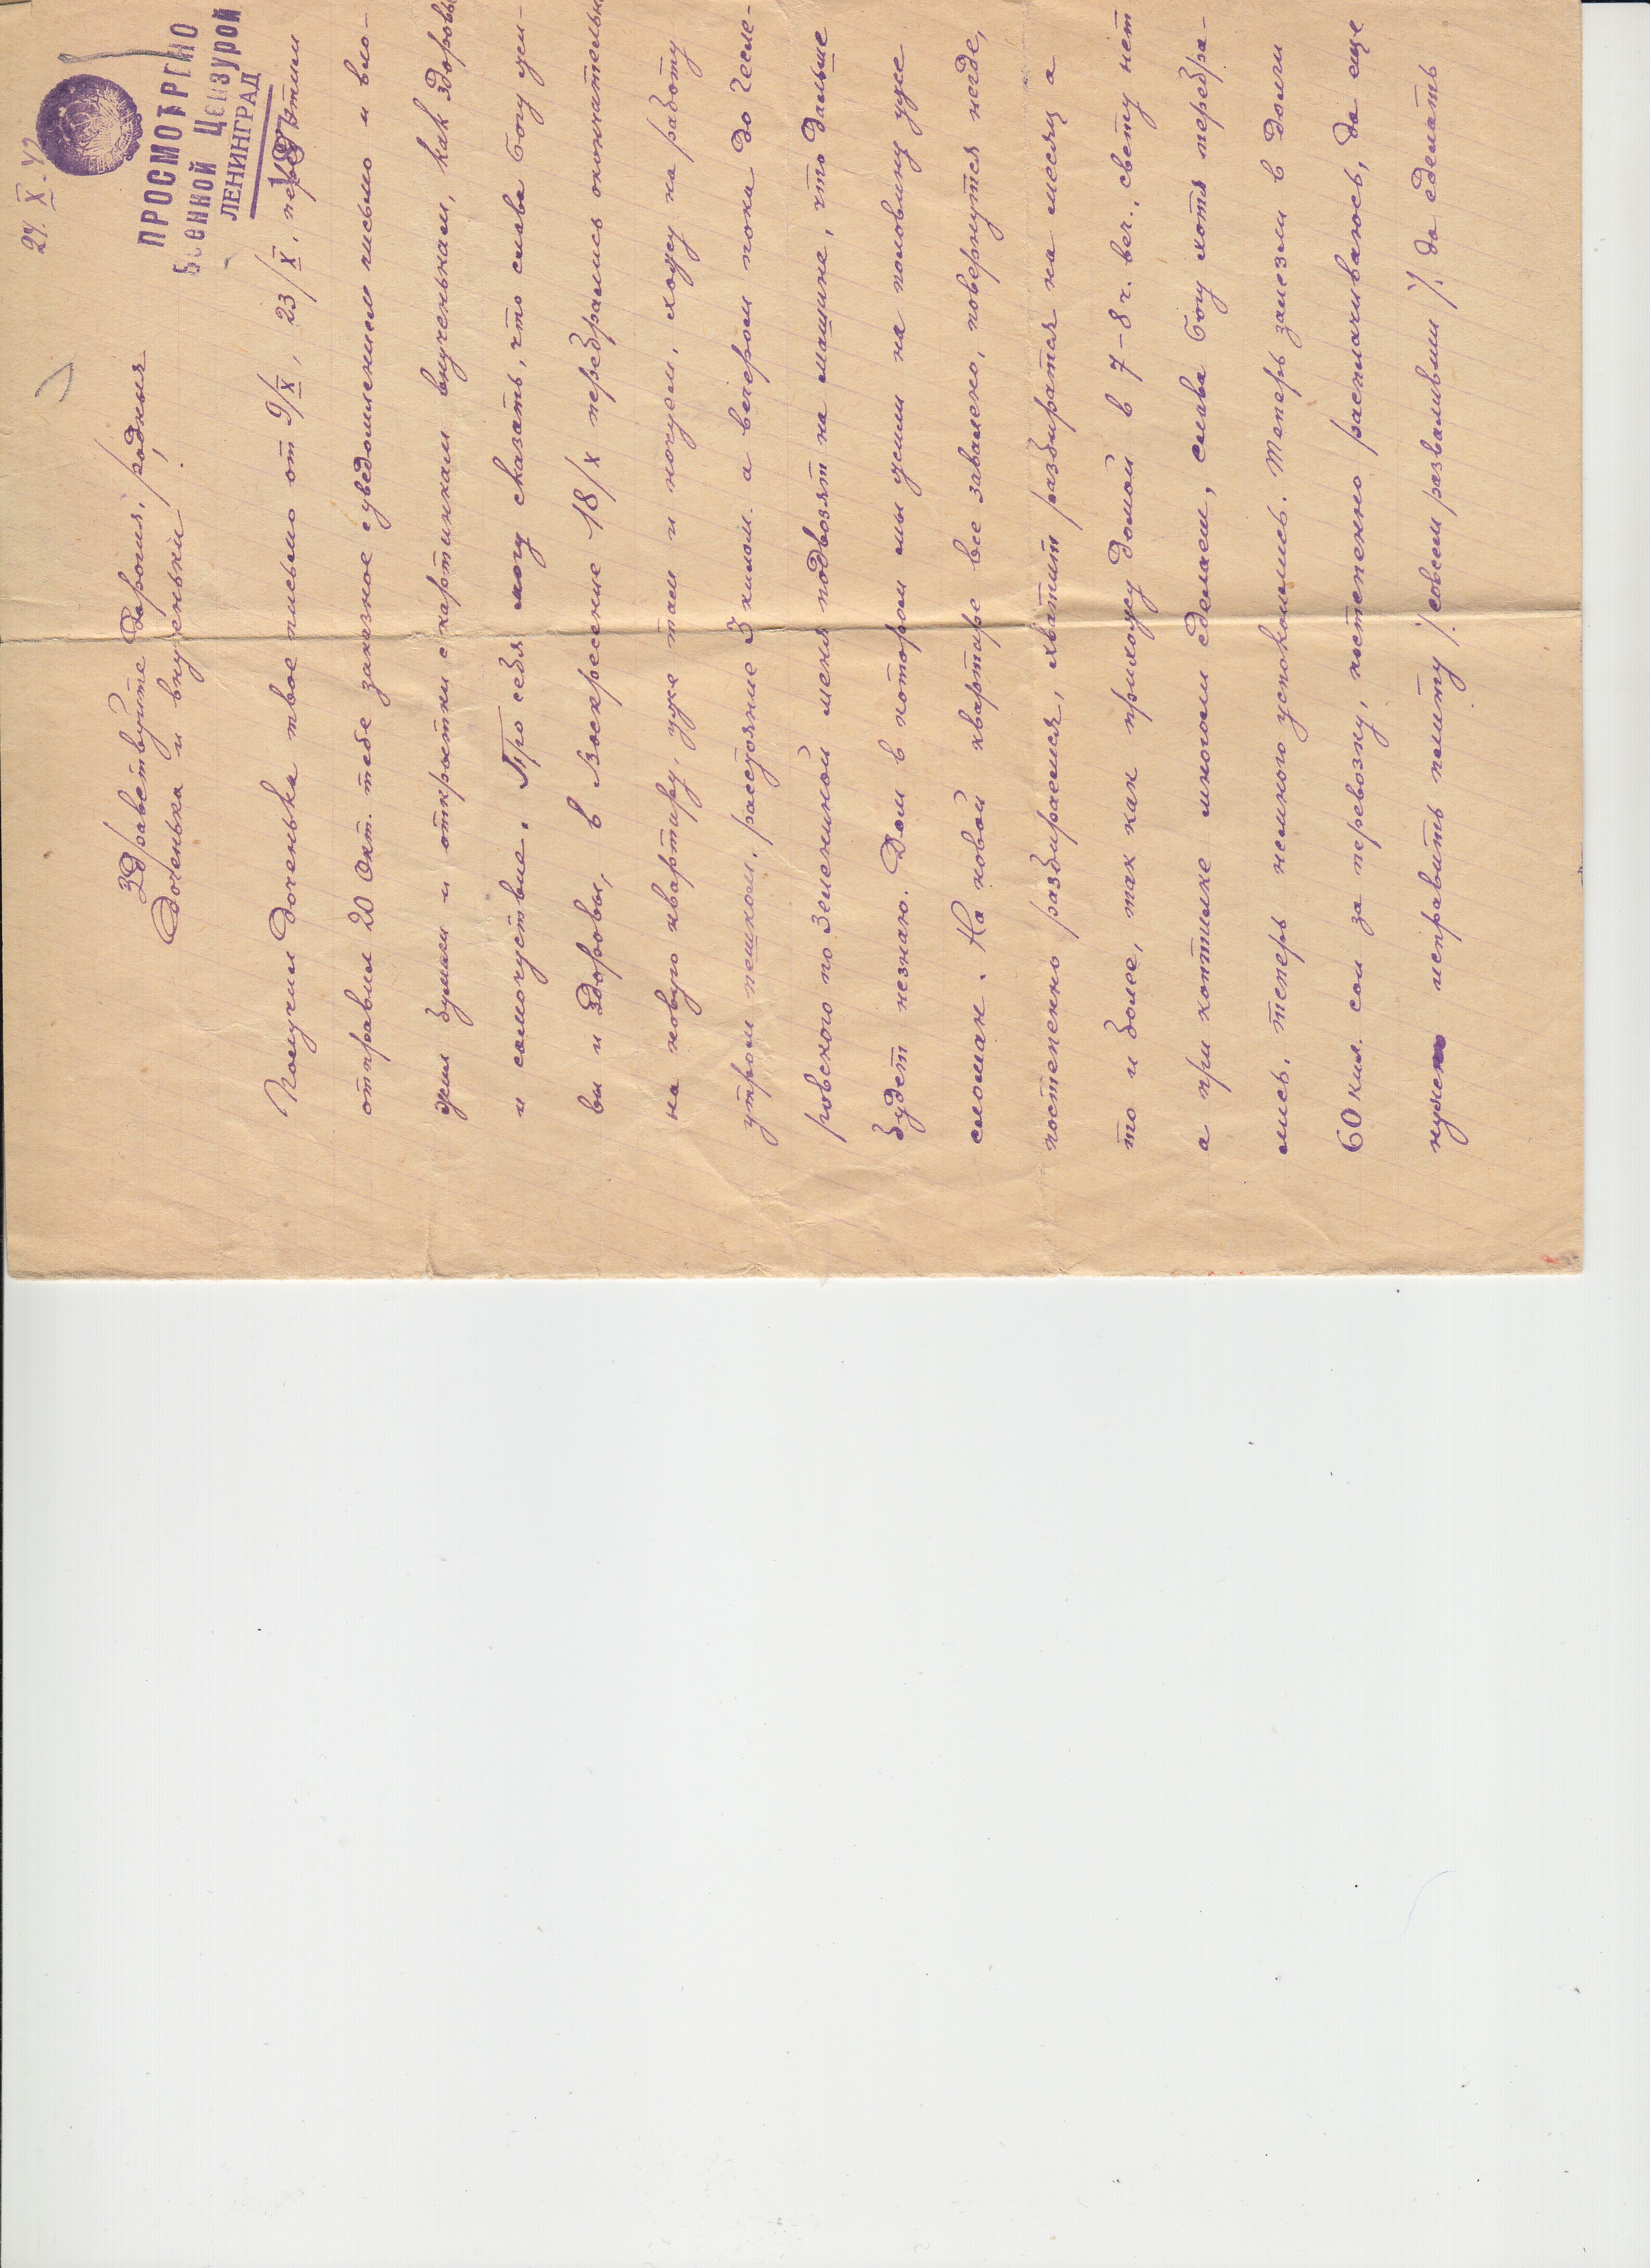 24 X-42
ПРОСМОТРЕНО
Военной Цензурой
ЛЕНИНГРАД
Здравствуйте дорогия, родныя
доченька и внученьки.
Получил доченька твое письмо от 9/X, 23/X, перед этим
отправил 20 Окт. тебе заказное с уведомлением письмо и вло-
жил бумаги и открытки с картинкам внученькам, как здоровье
и самочуствие. Про себя могу сказать, что слава Богу жи-
вы и здоровы, в Воскресение 18/X перебрались окончательно
на новую квартиру, уже там и ночуем, хожу на работу
утром пешком, расстояние 5 килом. а вечером пока до Чесме-
ровского по Земениной меня подвозят на машине, что дальше
будет незнаю. Дом в котором мы жили на половину уже
сломан. На новой квартире все завалено, повернутся негде,
постепенно разбираемся, хватит разбиратся на месяц а
то и более, так как прихожу домой в 7-8 ч. веч., свету нет
а при коптилке много ли сделаеш, слава Богу хотя перебра-
лись, теперь немного успокоились. Теперь залезли в долги
60 кил. сои за перевозку, постепенно расплачиваюсь, да еще
нужно исправить плиту /. совсем разваливши /. да сделать